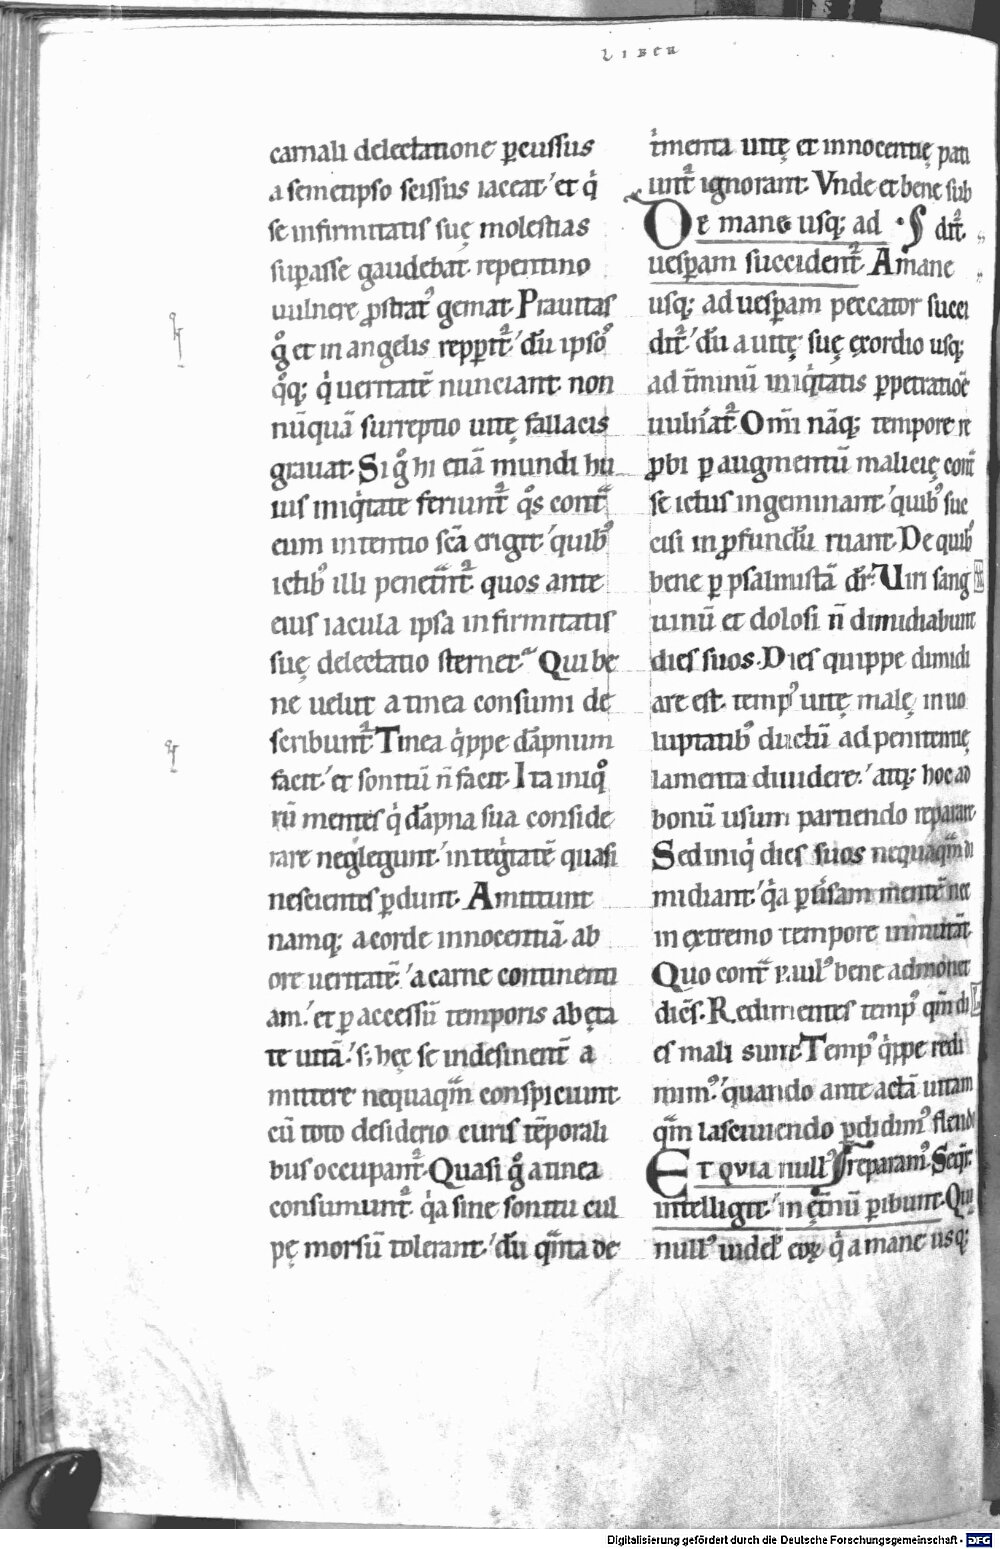 LIBER
carnali delectatione ꝑcussus
a semetipso scissus iaceat.' et qͥ
se infirmitatis suę molestias
suꝑasse gaudebat. repentino
uulnere ꝓstratꝰ gemat. Prauitas
gͦ et in angelis repꝑitᷣ.' dū ipsoꝰ
qͦq; qͥ ueritatē nunciant. non
nūquā surreptio uitę fallacis
grauat. Si gͦ hi etiā mundi hu
ius iniqͥtate feriuntᷣ. qͦs contͣ
eum intentio scā erigit.' quibꝰ
ictibꝰ illi penetͣntᷣ. quos ante
eius iacula ipsa infirmitatis
suę delectatio sternet. Qui be
ne uelut a tinea consumi de
scribuntᷣ. Tinea qͥppe dāpnum
facit.' et sonitū n̄ facit. Ita iniqͦ
rū mentes qͥ dāpna sua conside
rare neglegunt.' integͥtatē quasi
nescientes ꝑdunt. Amittunt
namq; a corde innocentiā. ab
ore ueritatē.' a carne continenti
am.' et ꝑ accessū temporis ab ęta
te uitā.' s; hęc se indesinent̄ a
mittere nequaqͣm conspiciunt.
cū toto desiderio curis tēporali
bus occupantᷣ. Quasi gͦ a tinea
consumuntᷣ. qͥa sine sonitu cul
pę morsū tolerant.' dū qͣnta de
tͥmenta uitę et innocentię pati
untᷣ ignorant. Vnde et bene sub
De mane usq; ad ditᷣ.
uesꝑam succidentᷣ. A mane
usq; ad uesꝑam peccator succi
ditᷣ.' dū a uitę suę exordio usq;
ad t̄minū iniqͥtatis ꝑpetratiōe
uulnͥatᷣ. Omī nāq; tempore re
ꝓbi ꝑ augmentū malicię contͣ
se ictus ingeminant.' quibꝰ suc
cisi in ꝓfundū ruant. De quibꝰ
bene ꝑ psalmistā dr̄. Uiri sang
uinū et dolosi n̄ dimidiabunt
dies suos. Dies quippe dimidi
are est. tempꝰ uitę malę in uo
luptatibꝰ ductū ad penitentię
lamenta diuidere.' atq; hoc ad
bonū usum partiendo reparare.
Sed iniqͥ dies suos nequaqͣm di
midiant.' qͥa ꝑuͥsam mentē nec
in extremo tempore inmutāt.
Quo contͣ paulꝰ bene admonet
diēs. Redimentes tempꝰ qm̄ di
es mali sunt. Tempꝰ qͥppe redi
mimꝰ.' quando ante actā uitam
qͣm lasciuiendo ꝑdidimꝰ flendo
reparamꝰ. Seqͥt.
Et qvia nullꝰ
intelligit.' in ęt̄nū ꝑibunt. Qui
nullꝰ uidel' eoꝝ qͥ a mane usq;